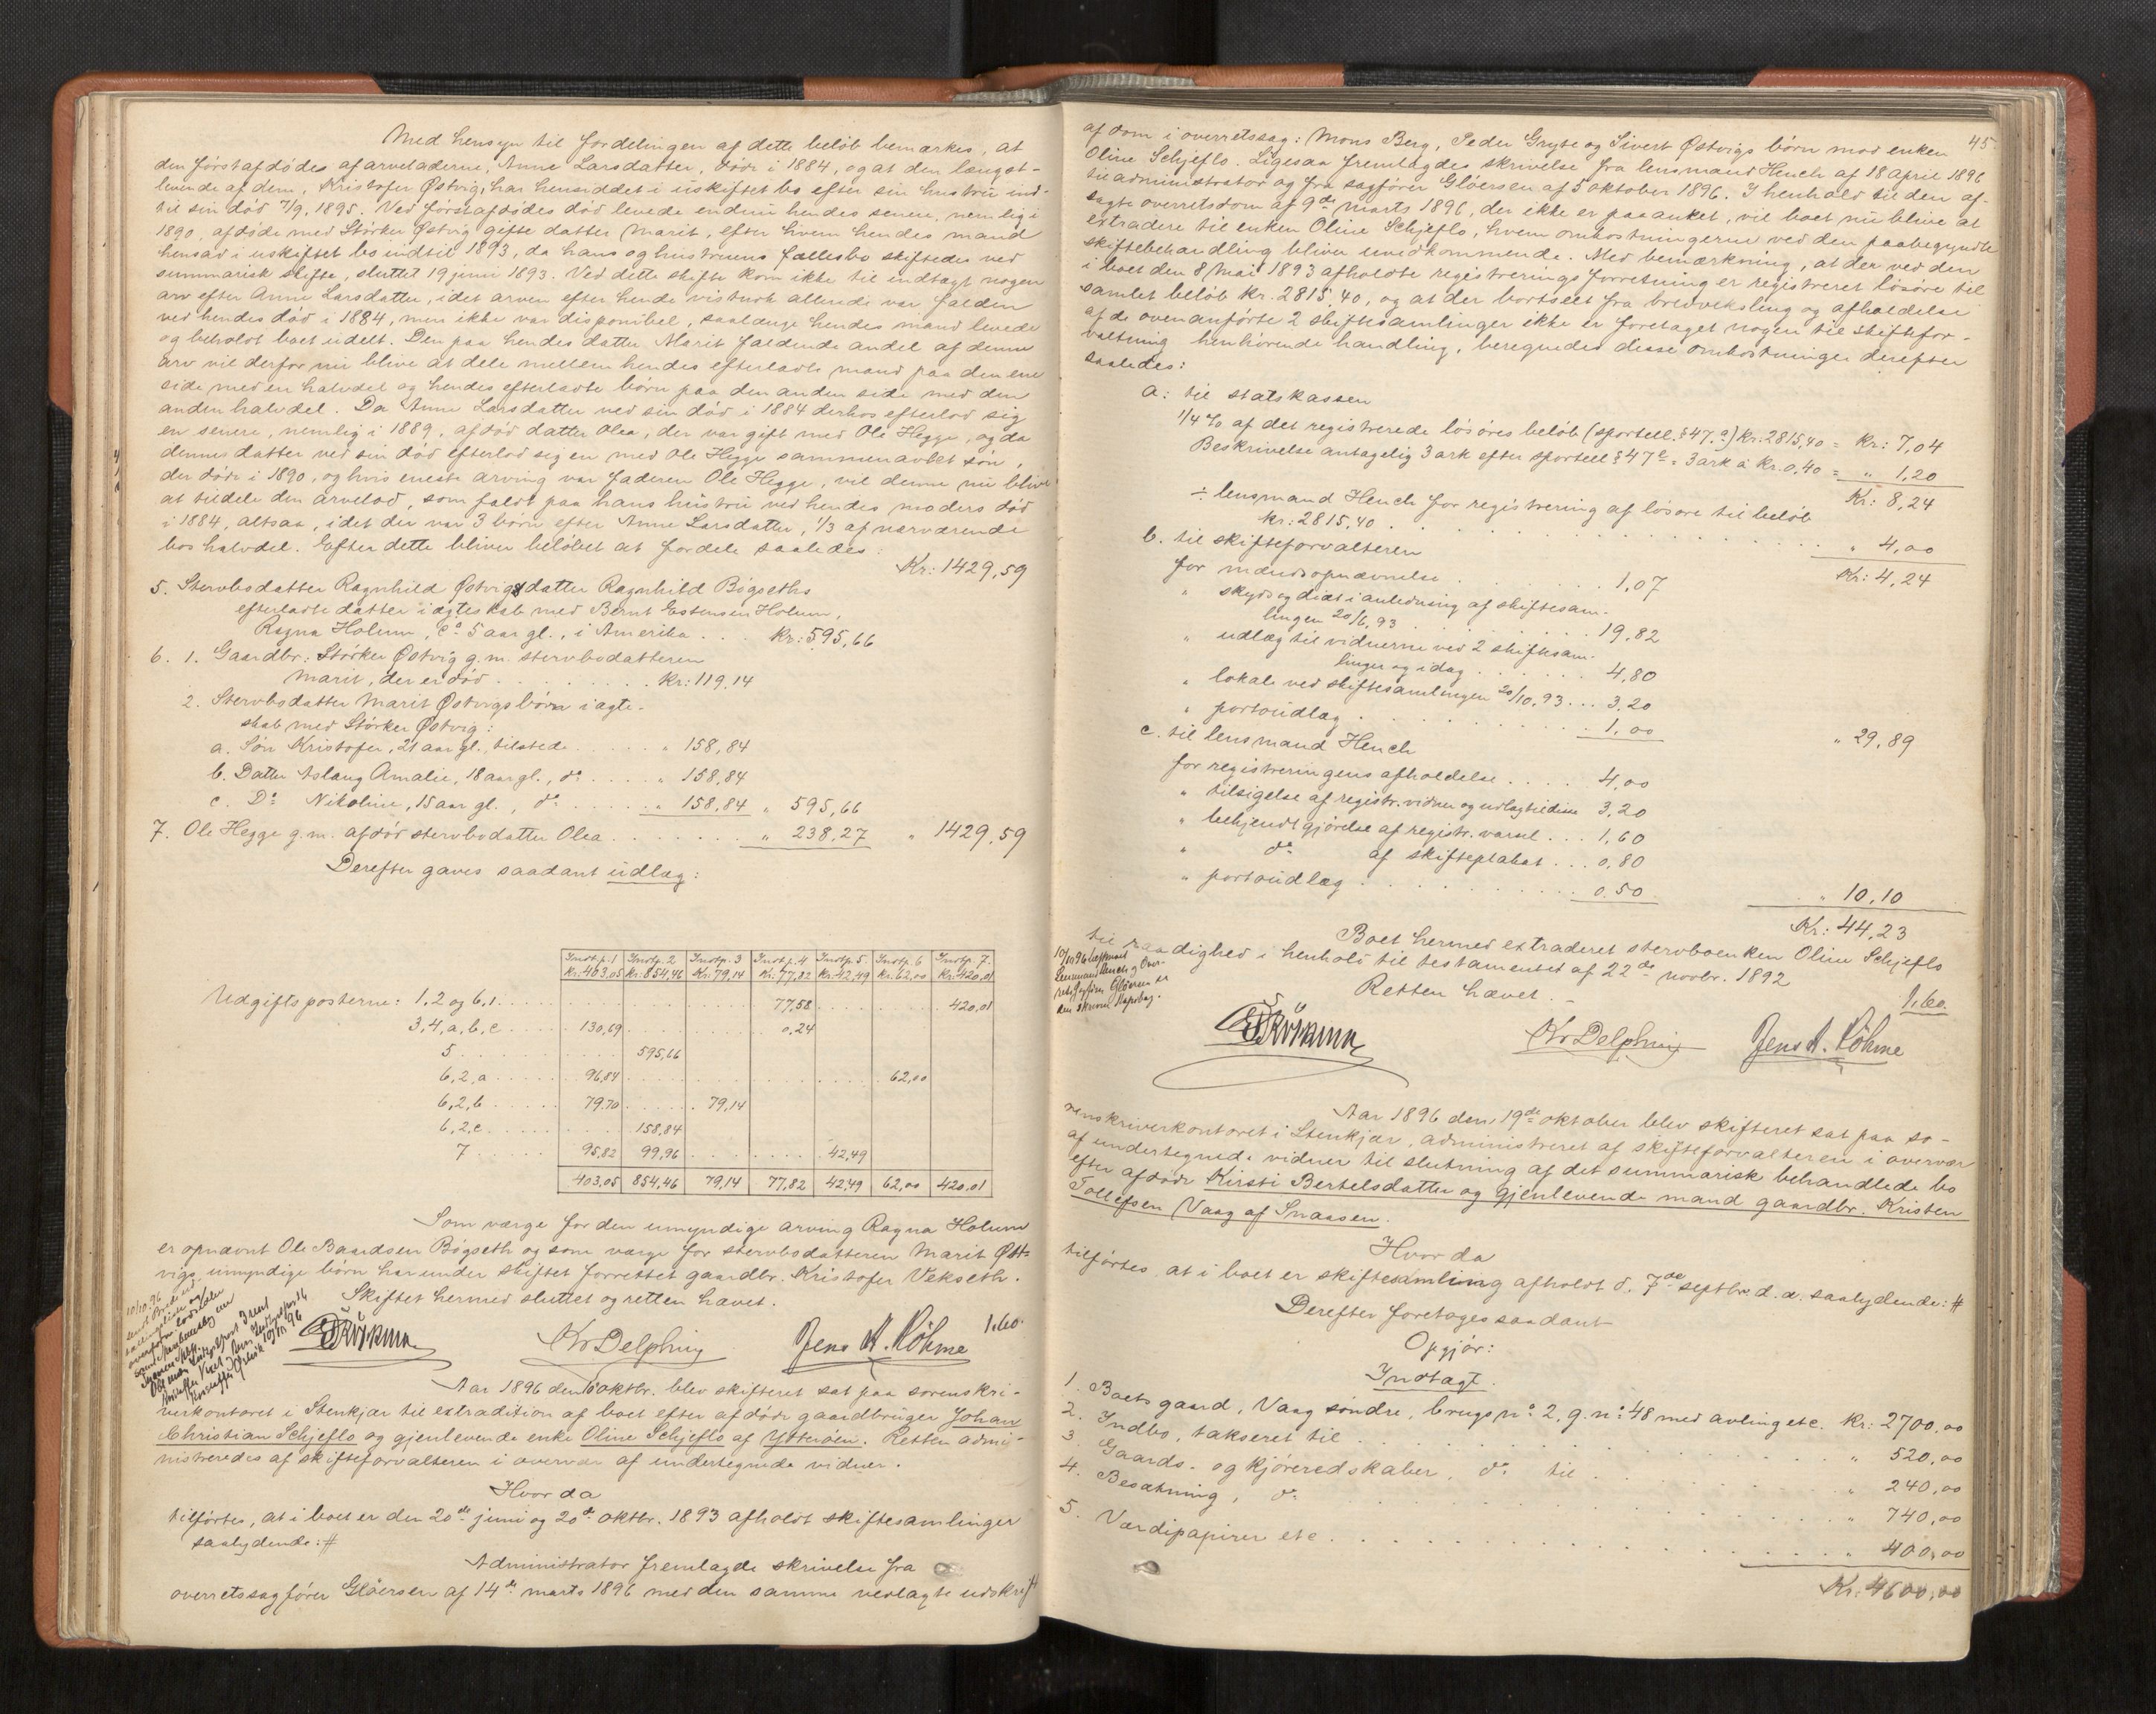 Med hensyn til fordelingen af dette beløb bemærkes, at
den førstafdødes af arveladerne, Anne Larsdatter, døde i 1884, og at den længst-
levende af dem, Kristofer Østvig, har hensiddet i uskiftet bo efter sin hustru ind-
til sin død 7/9 1895. Ved førstafdødes død levede endnu hendes senere, nemlig i
1890, afdøde med Størker Østvig gifte datter Marit, efter hvem hendes mand
hensad i uskiftet bo indtil 1893, da hans og hustruens fællesbo skiftedes ved
summarisk skifte, sluttet 19 juni 1893. Ved dette skifte kom ikke til indtægt nogen
arv efter Anne Larsdatter, idet arven efter hende vistnok allerede var falden
ved hendes død i 1884, men ikke var disponibel, saalænge hendes mand levede
og beholdt boet udelt. Den paa hendes datter Marit faldende andel af denne
arv vil derfor nu blive at dele mellem hendes efterladte mand paa den ene
side med en halvdel og hendes efterladte børn paa den anden side med den
anden halvdel. Da Anne Larsdatter ved sin død i 1884 derhos efterlod sig
en senere, nemlig i 1889, afdød datter Olea, der var gift med Ole Hegge, og da
denne datter ved sin død efterlod sig en med Ole Hegge sammenavlet søn,
der døde i 1890, og hvis eneste arving var faderen Ole Hegge, vil denne nu blive
at tildele den arvelod, som faldt paa hans hustru ved hendes moders død
i 1884, altsaa, idet der var 3 børn efter Anne Larsdatter, 1/3 af nærværende
bos halvdel. Efter dette bliver beløbet at fordele saaledes:
Kr: 1429,59
5. Stervbodatter Ragnhild Østvigs datter Ragnhild Bøgseths
efterladte datter i ægteskab med Bernt Estensen Holum,
Ragna Holum, ca 5 aar gl., i Amerika . . . Kr: 595,66
6. 1. Gaardbr. Størker Østvig g.m. stervbodatteren
Marit, der er død . . . . . . . . Kr: 119,14
2. Stervbodatter Marit Østvigs børn i ægte-
skab med Størker Østvig:
a. Søn Kristofer, 21 aar gl., tilstede . . . . . " 158,84
b. Datter Aslaug Amalie, 18 aar gl., do . . . . " 158,84
c. Do Nikoline, 15 aar gl., do . . . . . " 158,84 " 595,66
7. Ole Hegge g.m. afdød stervbodatter Olea . . . . . . . . " 238,27 " 1429,59
Derefter gaves saadant udlæg:
Indtp. 1 Indtp. 2 Indtp. 3 Indtp. 4 Indtp. 5 Indtp. 6 Indtp. 7
Kr: 403,05 Kr: 854,46 Kr: 79,14 Kr: 77,82 Kr: 42,49 Kr. 62,00 Kr: 420,01
Udgiftsposterne: 1, 2 og 6,1 . . . . 77,58 . . . . 420,01
3, 4, a, b, c . . . . 130,69 . . . . 0,24
5 . . . . 595,66
6,2,a . . . . 96,84 . . . . 62,00
6,2,b . . . . 79,70 . . . . 79,14
6,2,c . . . . 158,84
7 . . . . 95,82 99,96 . . . . 42,49
403,05 854,46 79,14 77,82 42,49 62,00 420,01
Som værge for den umyndige arving Ragna Holum
er opnævnt Ole Baardsen Bøgseth og som værge for stervbodatteren Marit Øst-
vigs umyndige børn har under skiftet forrettet gaardbr. Kristofer Vekseth.
Skiftet hermed sluttet og retten hævet.
10/10.96
1,60.
Kr Delphin Jens A. Røhme
Aar 1896 den 10 oktbr. blev skifteret sat paa sorenskri-
verkontoret i Stenkjær til extradition af boet efter afdøde gaardbruger Johan
Christian Schjeflo og gjenlevende enke Oline Schjeflo af Ytterøen. Retten admi-
nistreredes af skifteforvalteren i overvær af undertegnede vidner.
Hvor da
tilførtes, at i boet er den 20de juni og 20de oktbr. 1893 afholdt skiftesamlinger
saalydende: #
Administrator fremlagde skrivelse fra
overretssagfører Gløersen af 14de marts 1896 med den samme vedlagte udskrift
45.
af dom i overretssag: Mons Berg, Peder Gryte og Sivert Østvigs børn mod enken
Oline Schjeflo. Ligesaa fremlagdes skrivelse fra lensmand Hench af 18 april 1896
til administrator og fra sagfører Gløersen af 5 oktober 1896. I henhold til den af-
sagte overretsdom af 9de marts 1896, der ikke er paaanket, vil boet nu blive at
extradere til enken Oline Schjeflo, hvem omkostningerne ved den paabegyndte
skiftebehandling bliver uvedkommende. Med bemærkning, at der ved den
i boet den 8 mai 1893 afholdte registreringsforretning er registreret løsøre til
samlet beløb kr. 2815,40, og at der bortseet fra brevveksling og afholdelse
af de ovenanførte 2 skiftesamlinger ikke er foretaget nogen til skiftefor-
valtning henhørende handling, beregnedes disse omkostninger derefter
saaledes:
a: til statskassen
1/4 % af det registrerede løsøres beløb (sportell. § 47.a) kr. 2815,40 = Kr: 7,04
Beskrivelse antagelig 3 ark efter sportell § 47 c = 3 ark à Kr. 0,40 = " 1,20
Kr: 8,24
÷ lensmand Hench for registrering af løsøre til beløb
kr: 2815,40 . . . . . . . . " 4,00
Kr: 4,24
b. til skifteforvalteren
for mændsopnævnelse . . . . . . . 1,07
" skyds og diæt i anledning af skiftesam-
lingen 20/6.93 . . . . . . . 19,82
" udlæg til vidnerne ved 2 skiftesam-
linger og idag . . . . . . . 4,80
" lokale ved skiftesamlingen 20/10.93 . . . 3,20
" portoudlæg . . . . . . . 1,00
" 29,89
c. til lensmand Hench
for registreringens afholdelse . . . . 4,00
" tilsigelse af registr. vidner og udlæg til disse 3,20
" bekjendtgjørelse af registr. varsel . . . 1,60
" do af skifteplakat . . . 0,80
" portoudlæg . . . . . . . 0,50
" 10,10
Kr: 44,23
Boet hermed extraderet stervboenken Oline Schjeflo
til raadighed i henhold til testamentet af 22de novbr. 1892
Retten hævet. -
1,60.
Kr Delphin Jens A. Røhme
Aar 1896 den 19de oktober blev skifteret sat paa so-
renskriverkontoret i Stenkjær, administreret af skifteforvalteren i overvær
af undertegnede vidner til slutning af det summarisk behandlede bo
efter afdøde Kirsti Bertelsdatter og gjenlevende mand gaardbr. Kristen
Tollefsen Vaag af Snaasen.
Hvor da
tilførtes, at i boet er skiftesamling afholdt d. 7de septbr. d.a. saalydende: #
Derefter foretoges saadant
Opgjør:
Indtægt.
1. Boets gaard, Vaag søndre, brugs no 2, g. no 48 med avling etc. Kr: 2700,00
2. Indbo, takseret til . . . . . . . " 520,00
3. Gaards- og kjøreredskaber, do til . . . . . . . " 240,00
4. Besætning, do . . . . . . . " 740,00
5. Værdipapirer etc . . . . . . . " 400,00
Kr: 4600,00